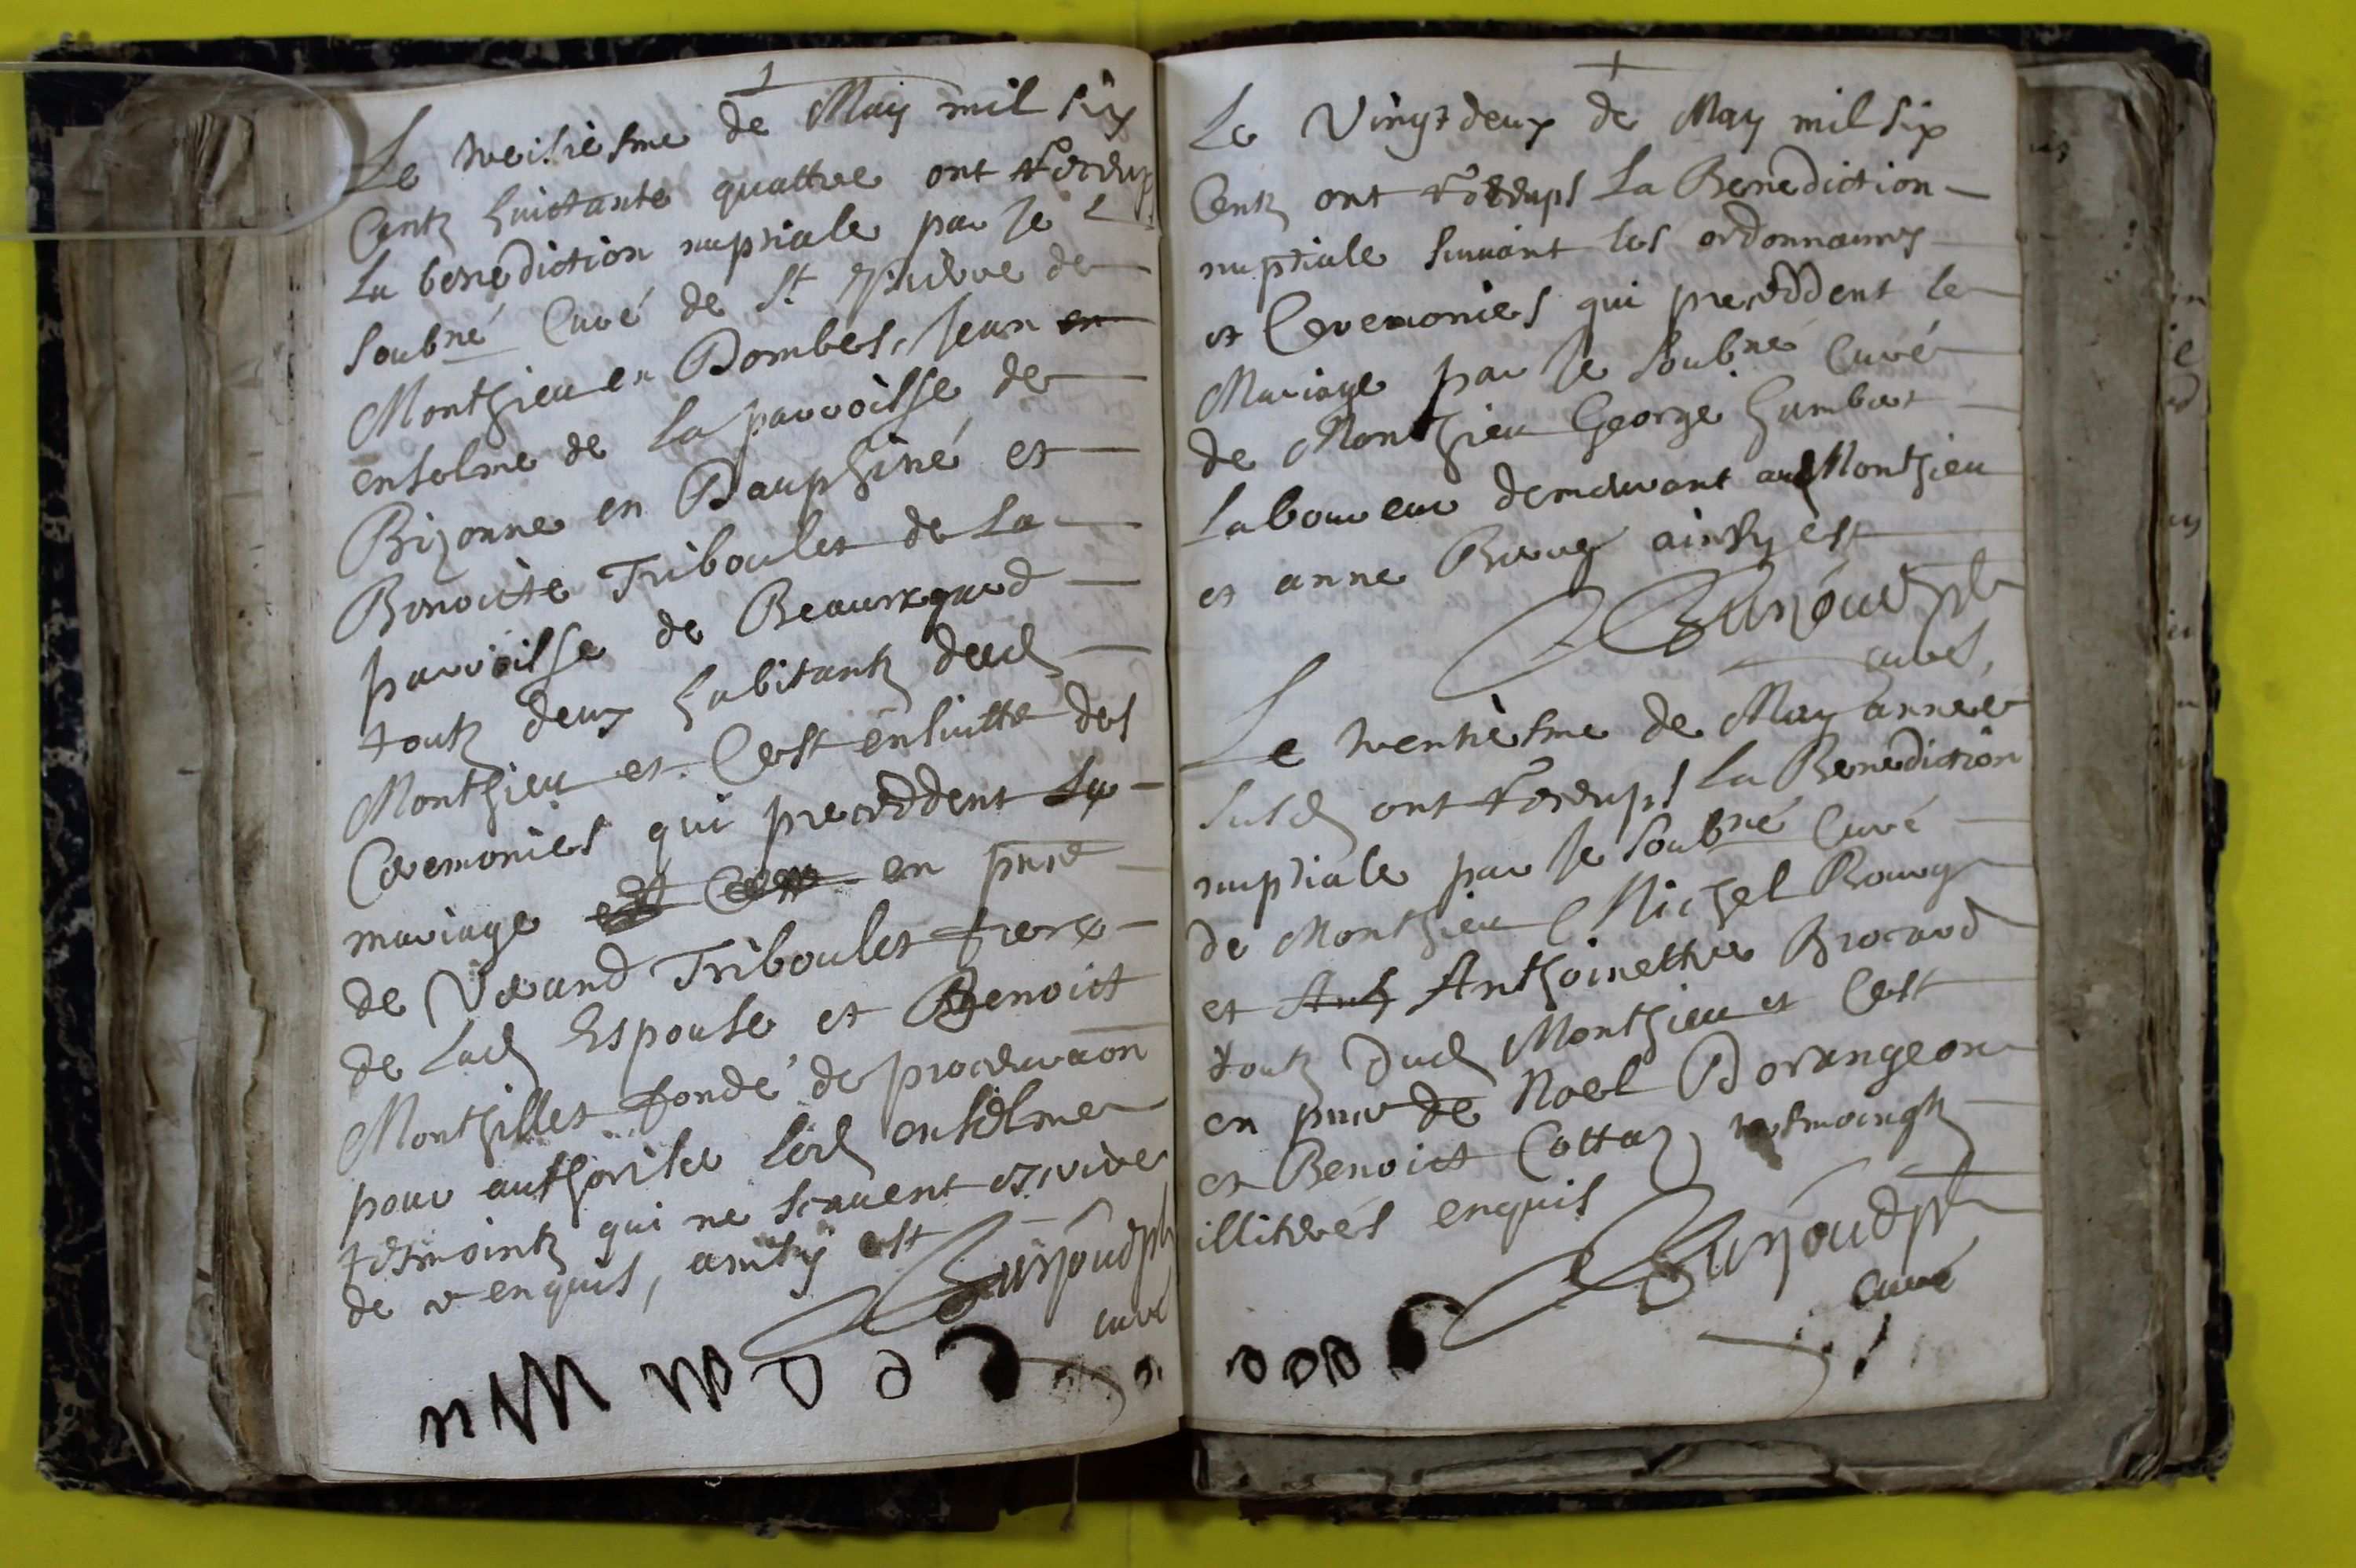 Le treisiesme de May mil six
Centz huictante quattre ont receups
La benediction nuptiale par Je
soubné Curé de St Pierre de
Monthieu en Dombes, Jean en
enselme de La parroisse de
Bizonne en Dauphiné et
Benoicte Triboulet de La
parroisse de Beauregard
toutz deux habitantz dud
Monthieu et Cest ensuitte des
Ceremonies qui precedent Le
mariage en pnce
de Verand Triboulet frere
de Lad Espouse et Benoict
Monthillet fondé de procuraon
pour authoriser led enselme
tesmointz qui ne scavent escrire
de ce enquis, ainsy est
Curé
Le Vingt deux de May mil six
Centz ont receups La Benediction
nuptiale suivant les ordonnances
et Ceremonies qui precedent le
Mariage par Je soubné Curé
de Monthieu George humbert
Laboureur demeurant aud Monthieu
et anne Bourg ainsy est
curé,
Le trentiesme de May année
susd ont receups La Benediction
nuptiale par Je soubné Curé
de Monthieu Michel Bourg
et Anth Anthoinettre Brocard
toutz dud Monthieu et Cest
en pnce de Noel Dorangeon
et Benoict Cottaz tesmoingtz
illiterés enquis
Curé